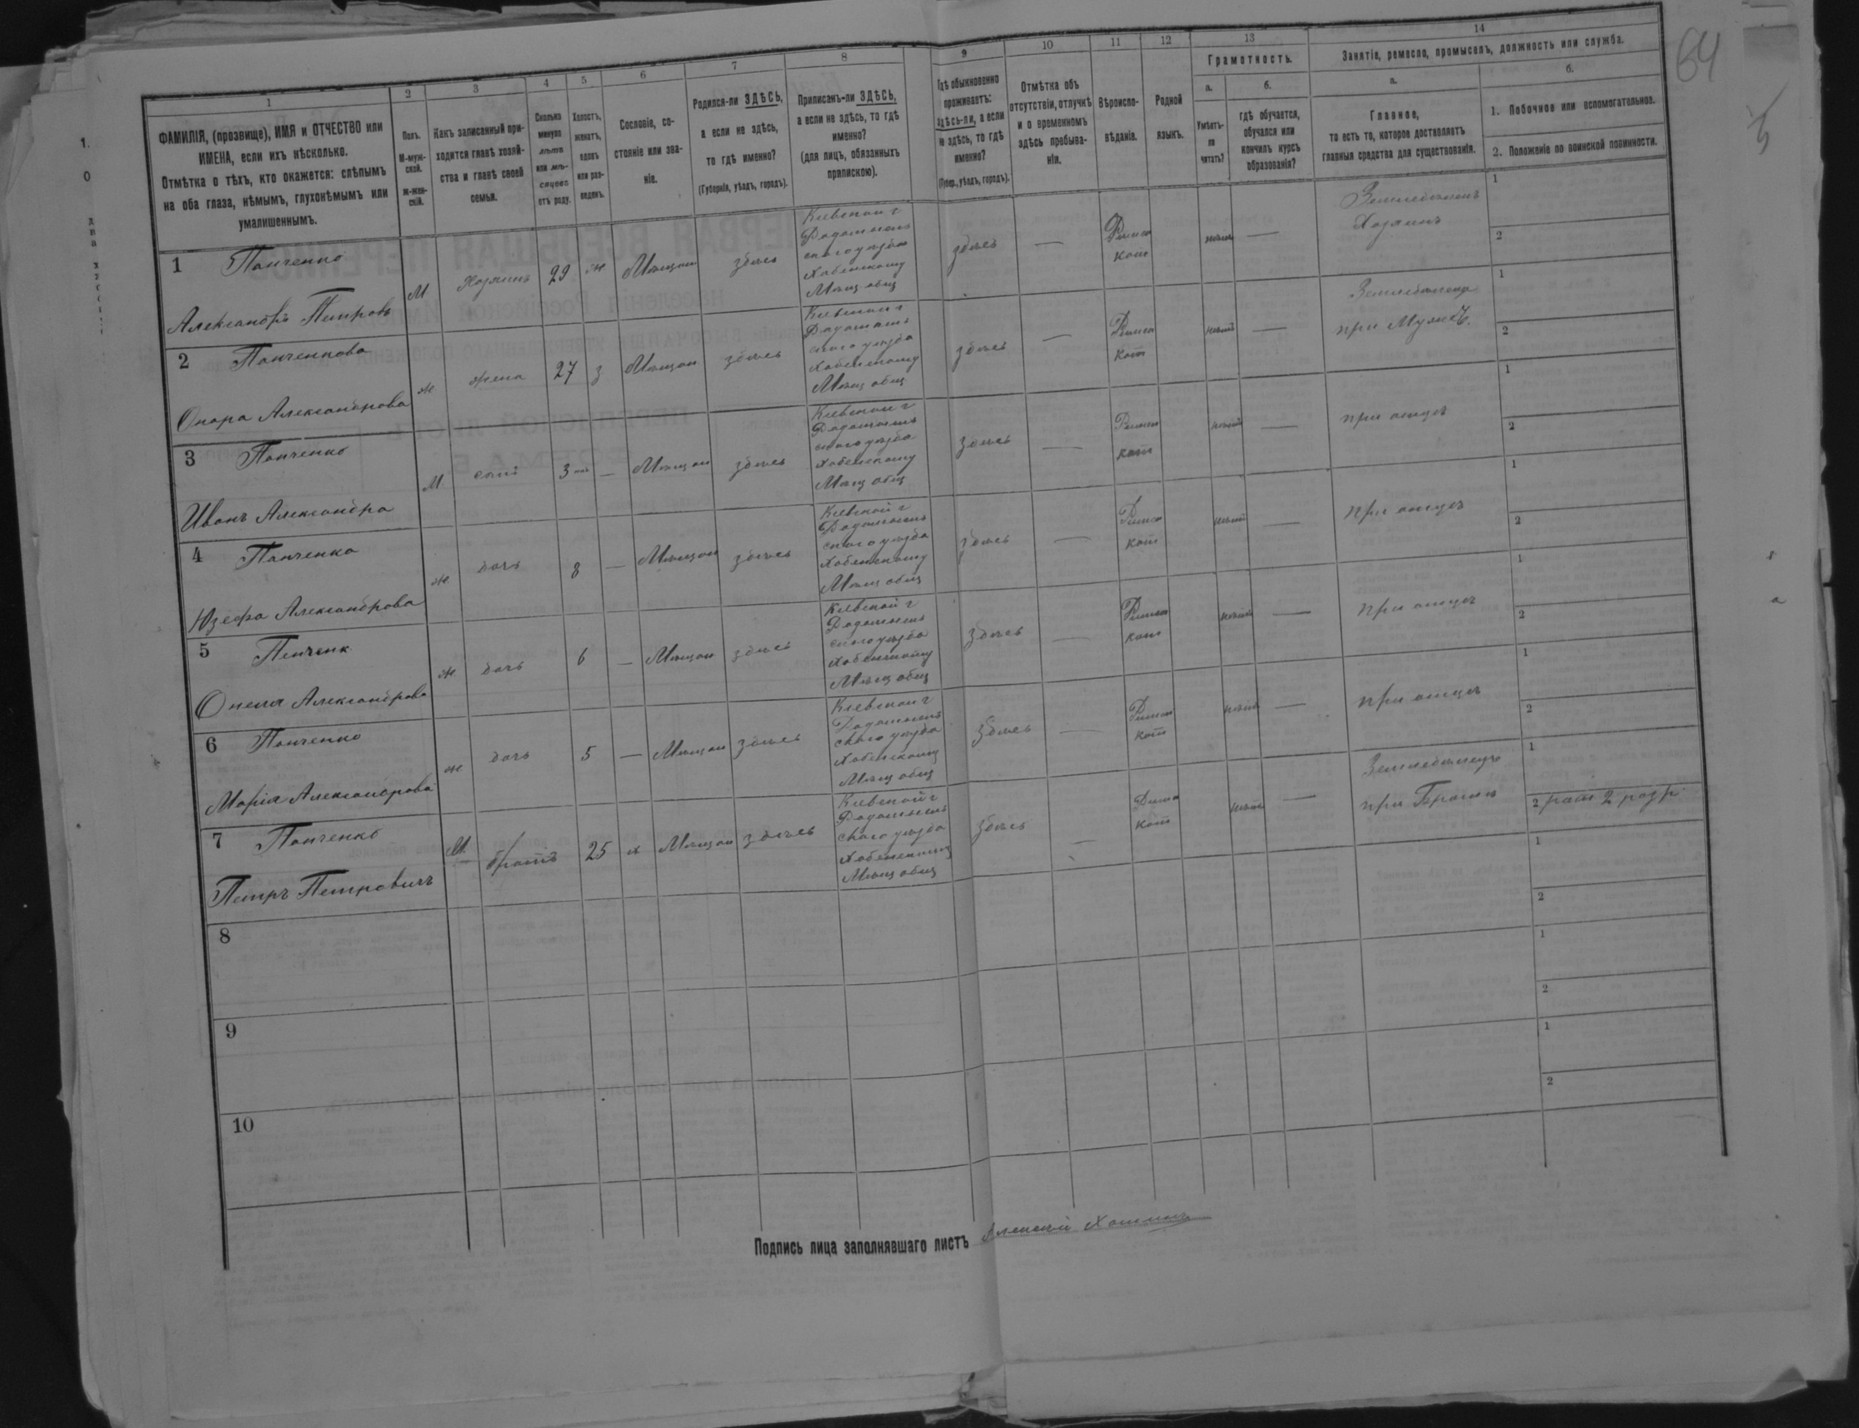 64
1
2
3
4
5
6
7
8
9
10
11
12
13
14
ФАМИЛІЯ, (прозвище), ИМЯ и ОТЧЕСТВО или
ИМЕНА, если ихъ нѣсколько.
Отмѣтка о тѣхъ, кто окажется: слѣпымъ
на оба глаза, нѣмымъ, глухонѣмымъ или
умалишеннымъ.
Полъ.
М-муж-
ской.
Ж-жен-
скій.
Какъ записанный при-
ходится главѣ хозяй-
ства и главѣ своей
семьи.
Сколько
минуло
лѣтъ
или мѣ-
сяцевъ
отъ роду.
Холостъ,
женатъ,
вдовъ
или раз-
веденъ.
Сословіе, со-
стояніе или зва-
ніе.
Родился-ли ЗДѢСЬ,
а если не здѣсь,
то гдѣ именно?
(Губернія, уѣздъ, городъ).
Приписанъ-ли ЗДѢСЬ,
а если не здѣсь, то гдѣ
именно?
(для лицъ, обязанныхъ
припискою).
Гдѣ обыкновенно
проживаетъ:
здѣсь-ли, а если
не здѣсь, то гдѣ
именно?
(Губер., уѣздъ, городъ).
Отмѣтка объ
отсутствіи, отлучкѣ
и о временномъ
здѣсь пребыва-
ніи.
Вѣроиспо-
вѣданіе.
Родной
языкъ.
Грамотность.
а.
Умѣетъ-
ли
читать?
б.
гдѣ обучается,
обучался или
кончилъ курсъ
образованія?
Занятіе, ремесло, промыселъ, должность или служба.
а.
Главное,
то есть то, которое доставляетъ
главныя средства для существованія.
б.
1. Побочное или вспомогательное.
2. Положеніе по воинской повинности.
1 Панченко
Александръ Петровъ
М хозяинъ 29 ж Мѣщан здѣсь
Кіевской г
Радомысль
скаго уѣзда
Хабенскому
Мѣщ общ
здѣсь — Римско
кат —
Хозяинъ
1
2
2 Панченкова
Александрова
ж жена 27 з Мѣщан здѣсь
Кіевской г
Радомысль
скаго уѣзда
Хабенскому
Мѣщ общ
здѣсь — Римско
кат —
при Мужѣ
1
2
3 Панченко
Иванъ Александро
М сынъ 3 — Мѣщан здѣсь
Кіевской г
Радомысль
скаго уѣзда
Хабенскому
Мѣщ общ
здѣсь — Римско
кат —
при отцѣ
1
2
4 Панченко
Юзефа Александрова
ж дочь 8 — Мѣщан здѣсь
Кіевской г
Радомысль
скаго уѣзда
Хабенскому
Мѣщ общ
здѣсь — Римско
кат —
при отцѣ
1
2
5 Панченк
Александрова
ж дочь 6 — Мѣщан здѣсь
Кіевской г
Радомысль
скаго уѣзда
Хабенскому
Мѣщ общ
здѣсь — Римско
кат —
при отцѣ
1
2
6 Панченко
Марія Александрова
ж дочь 5 — Мѣщан здѣсь
Кіевской г
Радомысль
скаго уѣзда
Хабенскому
Мѣщ общ
здѣсь — Римско
кат —
при отцѣ
1
2
7 Панченко
Петръ Петровичъ
М братъ 25 х Мѣщан здѣсь
Кіевской г
Радомысль
скаго уѣзда
Хабенскому
Мѣщ общ
здѣсь — Римско
кат —
при Братѣ
1
2 рат 2 разр
8
1
2
9
1
2
10
1
2
Подпись лица заполнявшаго листъ